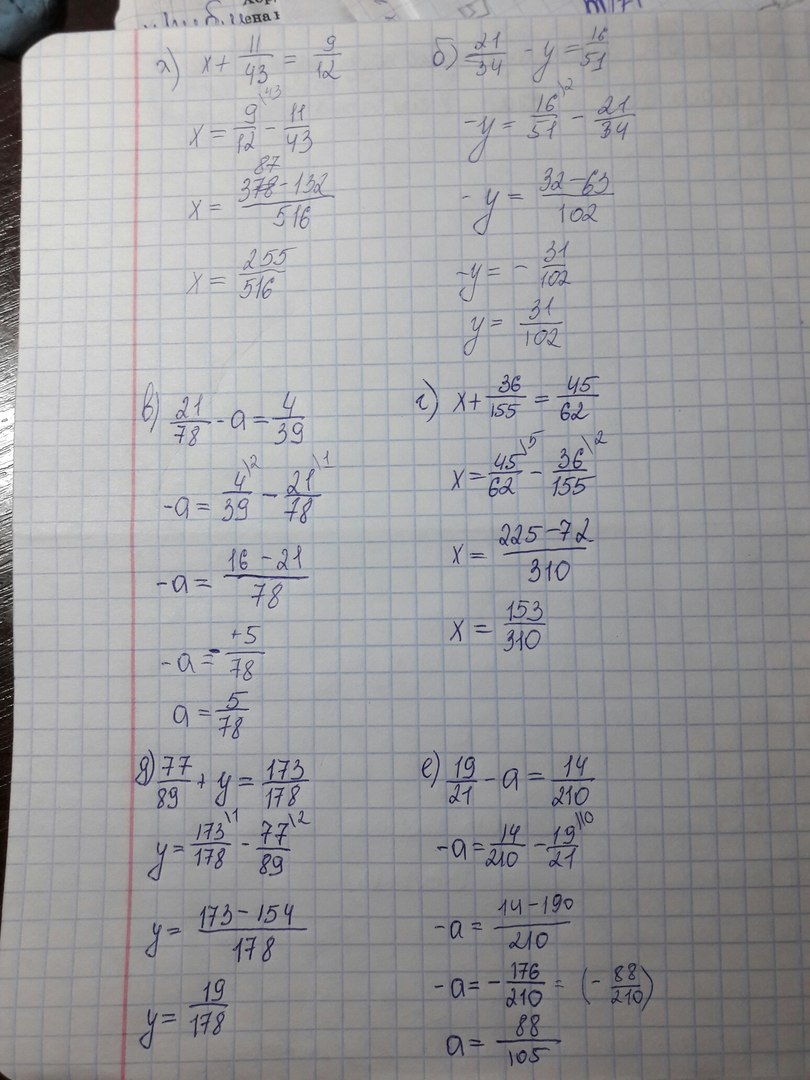 а) x + 11/43 = 9/12
x = 9/12 \43 - 11/43
x = (378 87 - 132)/516
x = 255/516
б) 21/34 - y = 16/51
-y = 16/51 \2 - 21/34
-y = (32 - 63)/102
-y = - 31/102
y = 31/102
в) 21/78 - a = 4/39
-a = 4/39 \2 - 21/78 \1
-a = (16 - 21)/78
-a = - +5/78
a = 5/78
г) x + 36/155 = 45/62
x = 45/62 \5 - 36/155 \2
x = (225 - 72)/310
x = 153/310
д) 77/89 + y = 173/178
y = 173/178 \1 - 77/89 \2
y = (173 - 154)/178
y = 19/178
е) 19/21 - a = 14/210
-a = 14/210 - 19/21 \10
-a = (14 - 190)/210
-a = - 176/210 = (- 88/210)
a = 88/105